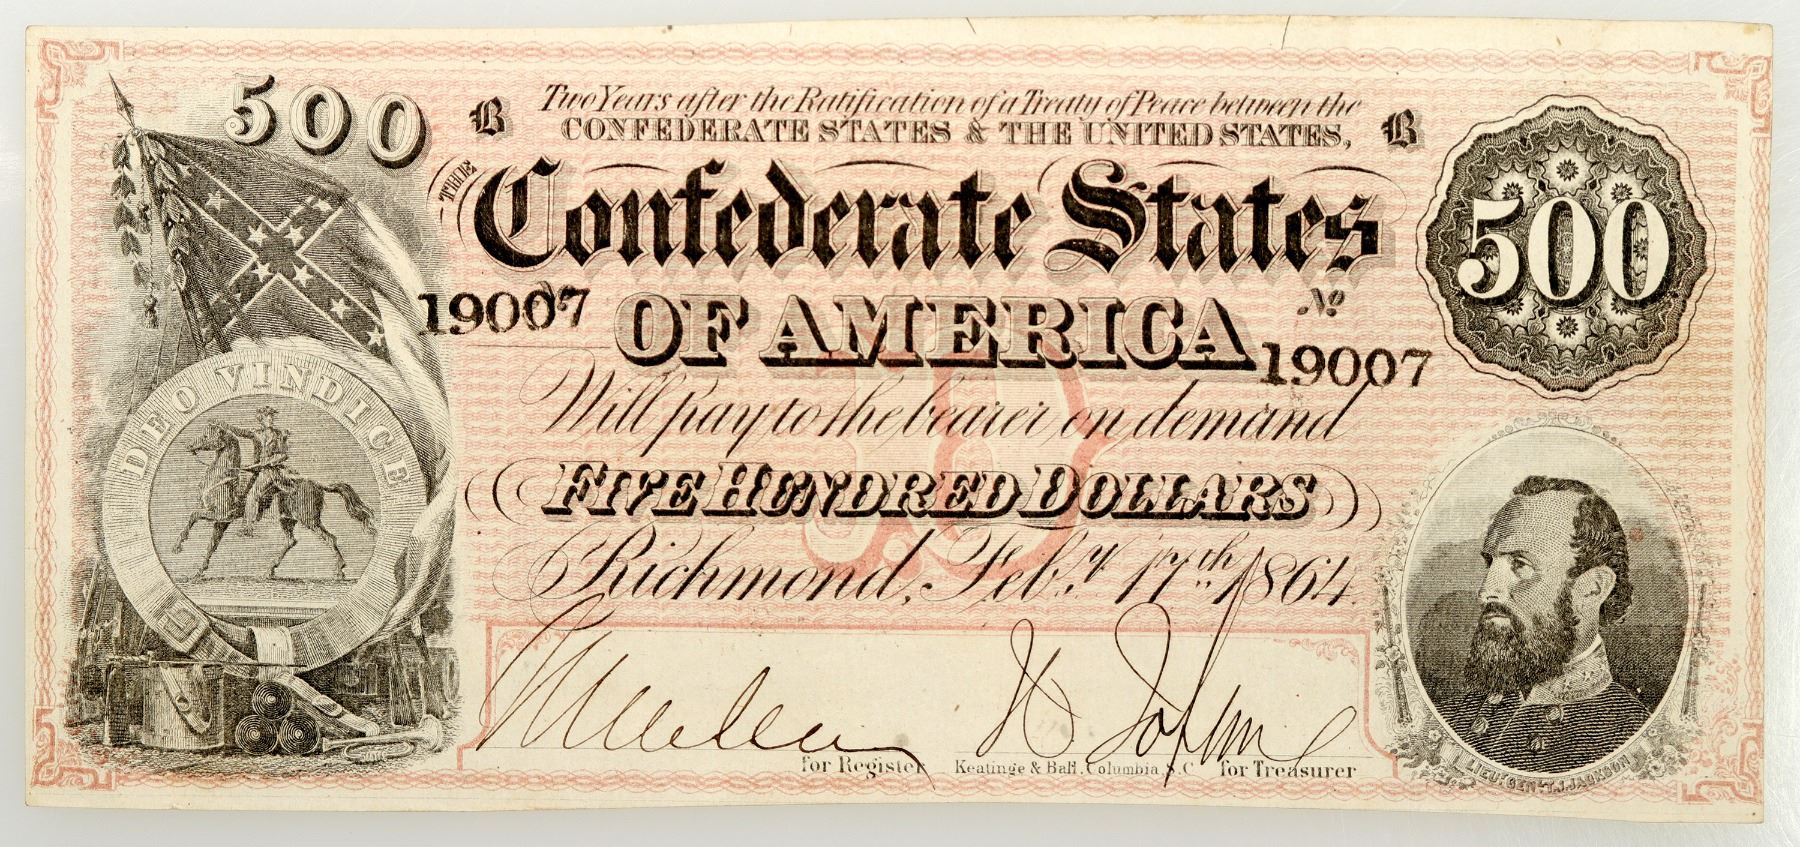 500
B Two Years after the Ratification of a Treaty of Peace between the B
CONFEDERATE STATES & THE UNITED STATES,
THE Confederate States
500
19007 No
OF AMERICA
No
19007
Will pay to the bearer on demand
FIVE HUNDRED DOLLARS
Richmond, Feb.y 17th 1864.
DEO VINDICE
for Register
Keatinge & Ball, Columbia, S.C.
for Treasurer
LIEUT. GENL. T. J. JACKSON